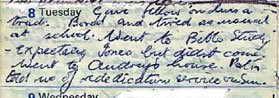 8 Tuesday Gave fellow on bus a
tract. Bored and tired as usual
at school. Went to Bible Study
- Expecting Jones but didnt come.
Went to Audreys house. Pat &
told me of rededication service on Sun.
9 Wednesday